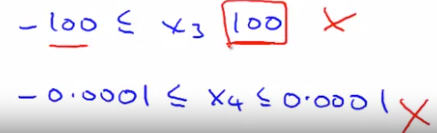 -100 ≤ x₃ 100 ×
-0.0001 ≤ x₄ ≤ 0.0001 ×